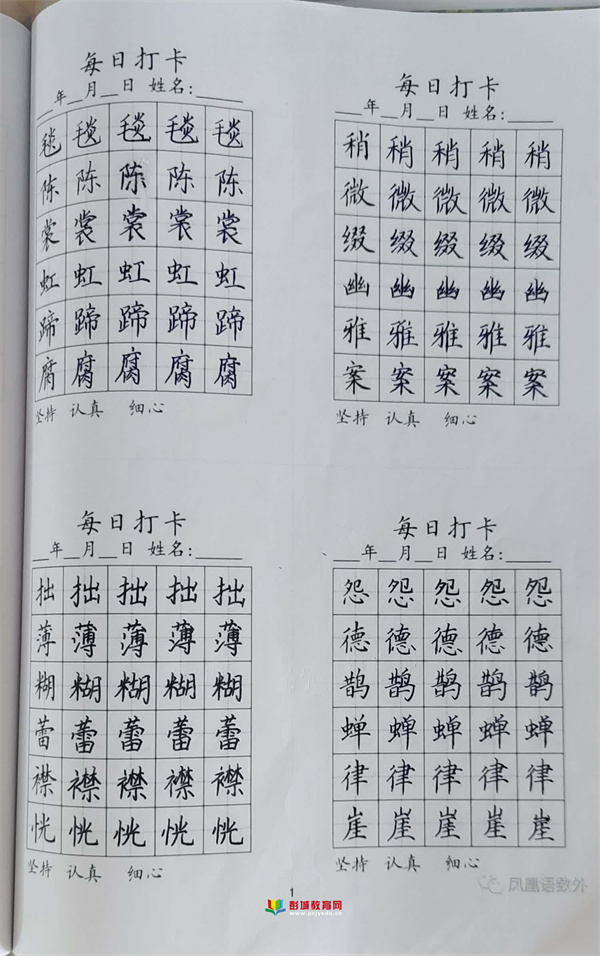 每日打卡
__年__月__日 姓名:____
毯 毯 毯 毯 毯
陈 陈 陈 陈 陈
裳 裳 裳 裳 裳
虹 虹 虹 虹 虹
蹄 蹄 蹄 蹄 蹄
腐 腐 腐 腐 腐
坚持 认真 细心
每日打卡
__年__月__日 姓名:____
稍 稍 稍 稍 稍
微 微 微 微 微
缀 缀 缀 缀 缀
幽 幽 幽 幽 幽
雅 雅 雅 雅 雅
案 案 案 案 案
坚持 认真 细心
每日打卡
__年__月__日 姓名:____
拙 拙 拙 拙 拙
薄 薄 薄 薄 薄
糊 糊 糊 糊 糊
蕾 蕾 蕾 蕾 蕾
襟 襟 襟 襟 襟
恍 恍 恍 恍 恍
坚持 认真 细心
每日打卡
__年__月__日 姓名:____
怨 怨 怨 怨 怨
德 德 德 德 德
鹊 鹊 鹊 鹊 鹊
蝉 蝉 蝉 蝉 蝉
律 律 律 律 律
崖 崖 崖 崖 崖
坚持 认真 细心
凤凰语数外
1
彭城教育网
www.pcjyedu.cn